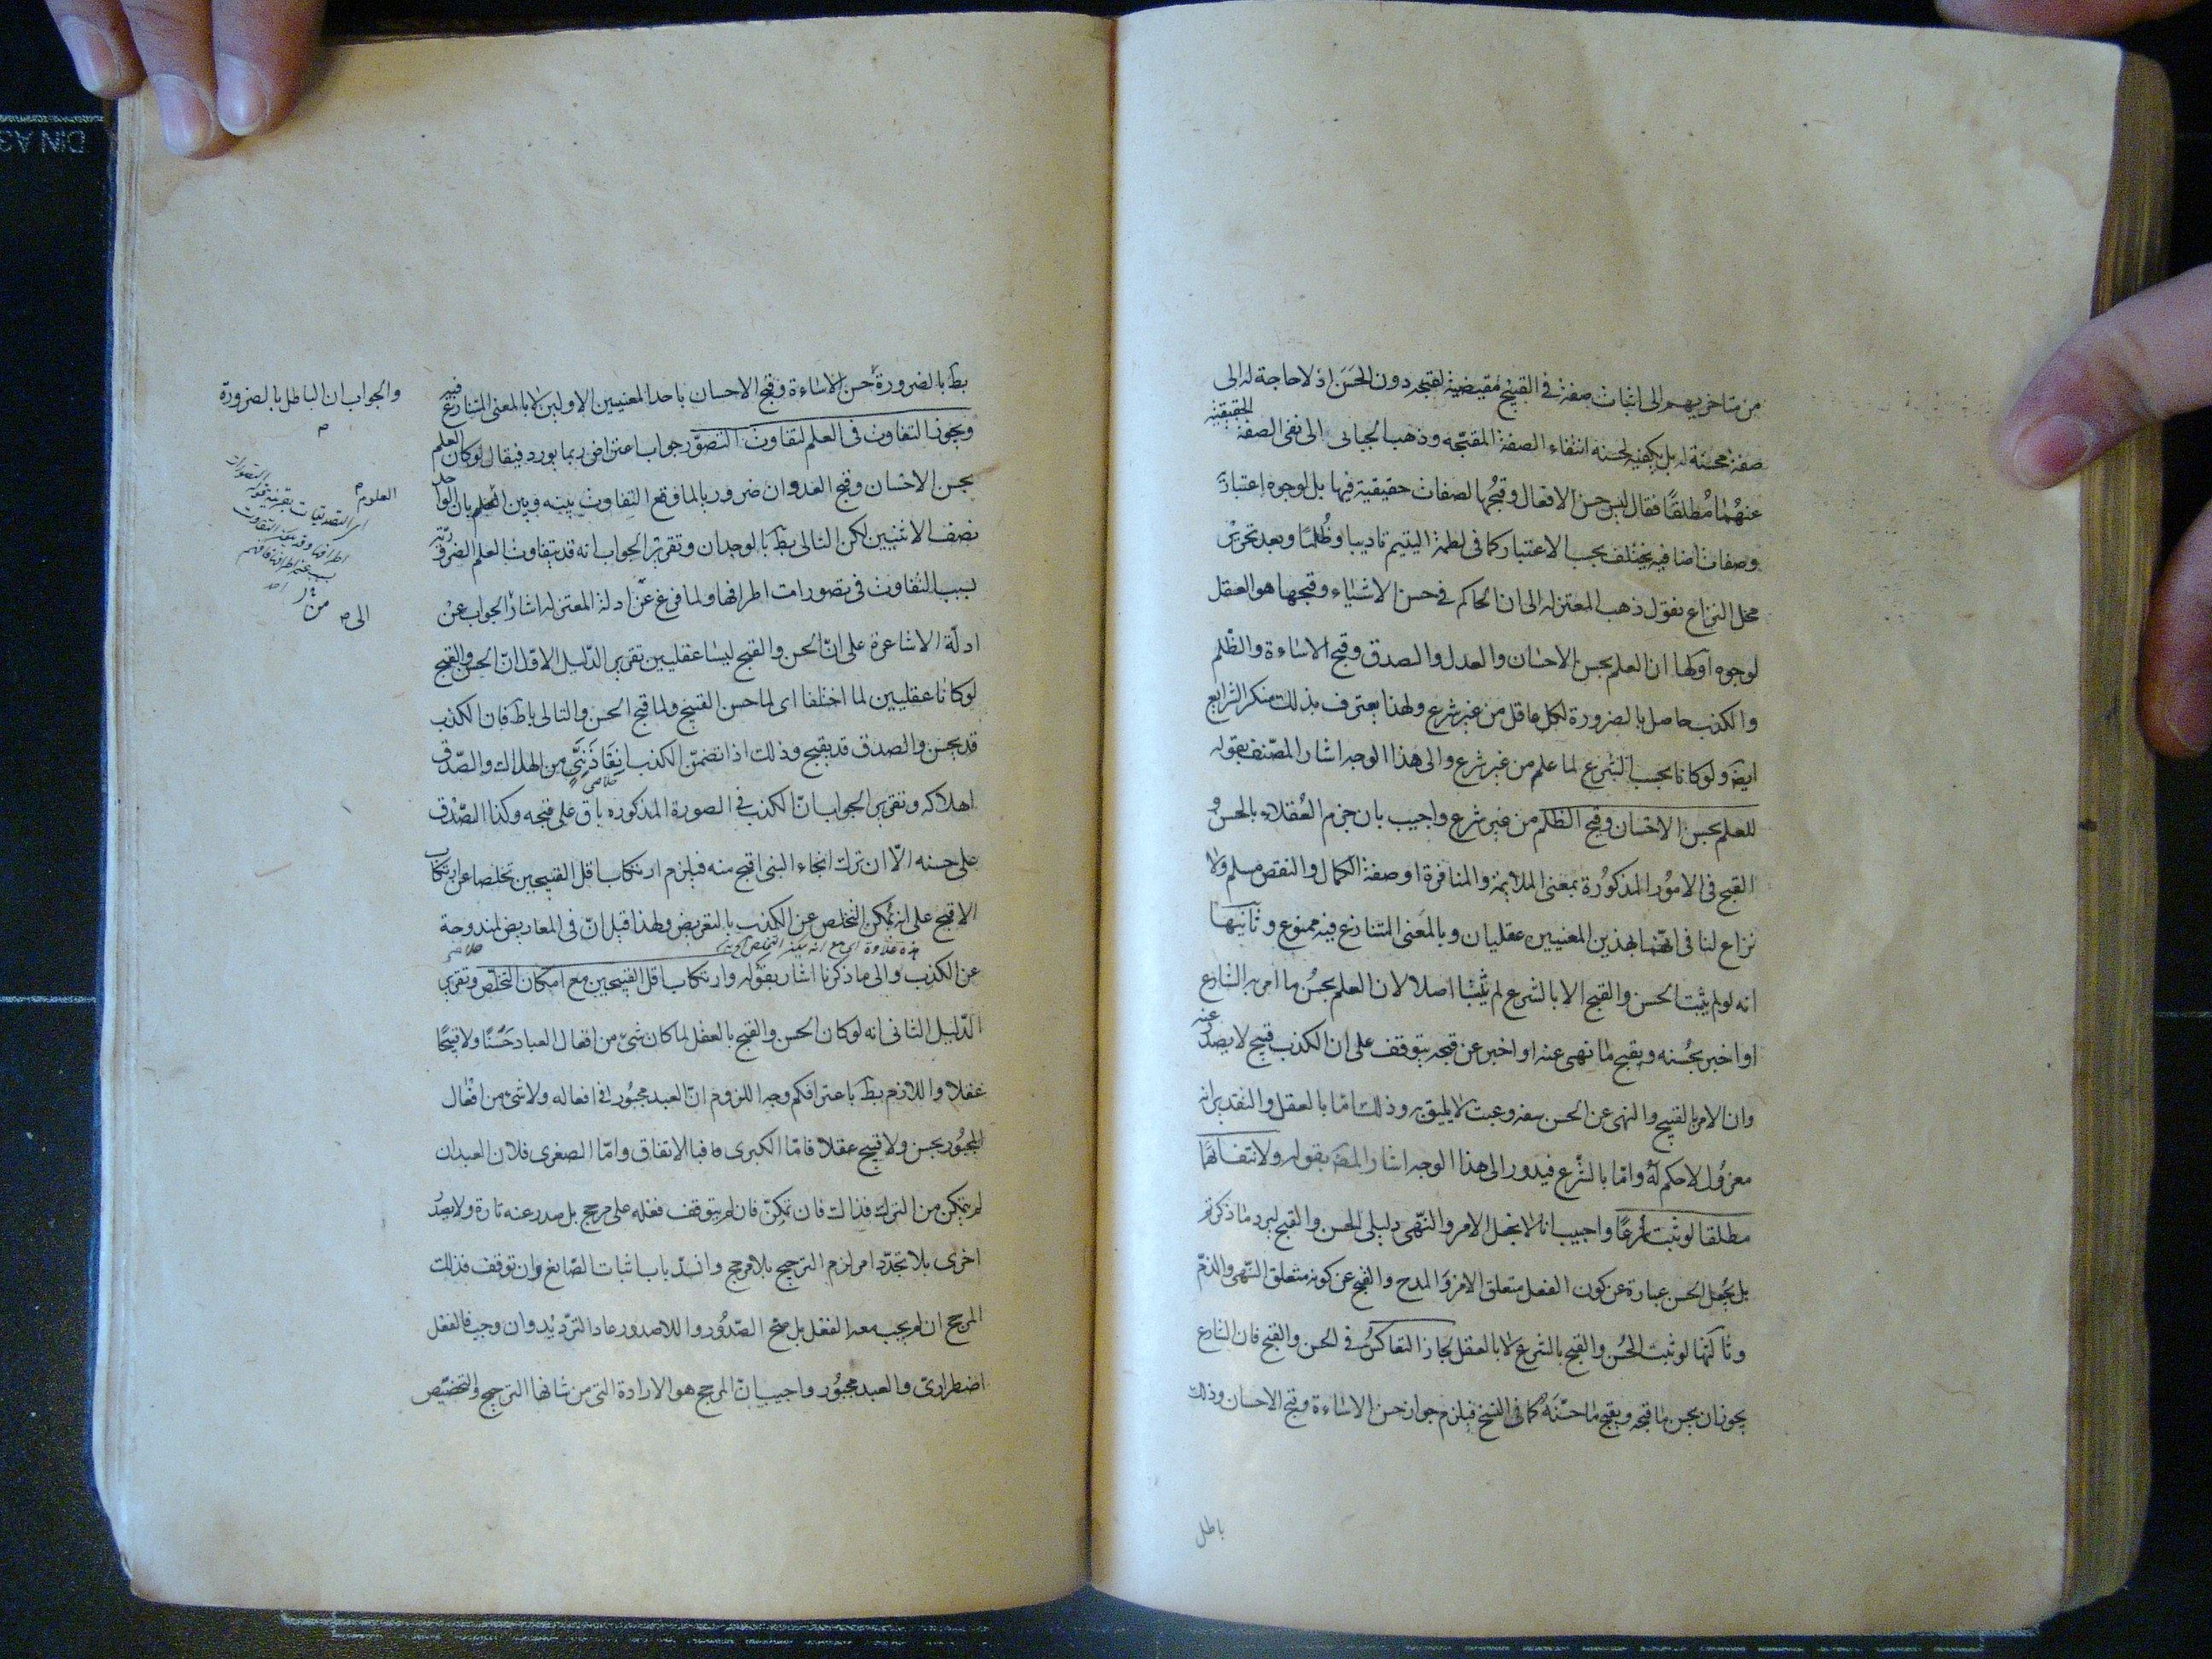 من متاخريهم الى اثبات صفة فى القبيح مقتضية لقبحه دون الحسن اذ لا حاجة له الى
صفة محسنة له بل يكفيه لحسنه انتفاء الصفة المقبحه وذهب الجبائى الى نفى الصفة الحقيقية
عنهما مطلقا فقال ليس حسن الافعال وقبحها لصفات حقيقية فيها بل لوجوه اعتبارية
وصفات اضافيه يختلف بحسب الاعتبار كما فى لطمة اليتيم تاديبا وظلما وبعد تحرير
محل النزاع نقول ذهب المعتزله الى ان الحاكم فى حسن الاشياء وقبحها هو العقل
لوجوه اولها ان العلم بحسن الاحسان والعدل والصدق وقبح الاساءة والظلم
والكذب حاصل بالضرورة لكل عاقل من غير شرع ولهذا يعترف بذلك منكر الشرايع
ايضا ولو كانا بحسب الشرع لما علم من غير شرع والى هذا الوجه اشار المصنف بقوله
للعلم بحسن الاحسان وقبح الظلم من غير شرع واجيب بان جزم العقلاء بالحسن و
القبح فى الامور المذكورة بمعنى الملايمة والمنافرة او صفة الكمال والنقص مسلم ولا
نزاع لنا فى انهما بهذين المعنيين عقليان وبالمعنى المتنازع فيه ممنوع وثانيها
انه لو لم يثبت الحسن والقبح الا بالشرع لم يثبتا اصلا لان العلم بحسن ما امر به الشارع
او اخبر بحسنه وبقبح ما نهى عنه او اخبر عن قبحه يتوقف على ان الكذب قبيح لا يصدر عنه
وان الامر بالقبيح والنهى عن الحسن سفه وعبث لا يليق به وذلك اما بالعقل والتقدير انه
معزول لا حكم له واما بالشرع فيدور الى هذا الوجه اشار المصه بقوله ولانتفائهما
مطلقا لو ثبت شرعا واجيب انا لا نجعل الامر والنهى دليلى الحسن والقبح ليرد ما ذكرتم
بل نجعل الحسن عبارة عن كون الفعل متعلق الامر والمدح والقبح عن كونه متعلق النهى والذم
وثالثها لو ثبت الحسن والقبح بالشرع لا بالعقل لجاز التعاكس فى الحسن والقبح فان الشارع
يجوز ان يحسن ما قبحه ويقبح ما حسنه كما فى النسخ فيلزم جواز حسن الاساءة وقبح الاحسان وذلك
باطل
بط بالضرورة حسن الاساءة وقبح الاحسان باحد المعنيين الاولين لا بالمعنى المتنازع فيه
والجواب ان الباطل بالضرورة
ويجوز التفاوت فى العلم لتفاوت التصور جواب اعتراض ربما يورد فيقال لو كان العلم
بحسن الاحسان وقبح العدوان ضروريا لما وقع التفاوت بينه وبين العلم بان الواحد
نصف الاثنين لكن التالى بط بالوجدان وتقرير الجواب انه قد يتفاوت العلم الضرورية
العلوم
بسبب التفاوت فى تصورات اطرافها ولما فرغ عن ادلة المعتزله اشار الجواب عن
ادلة الاشاعرة على ان الحسن والقبح ليسا عقليين تقرير الدليل الاول ان الحسن والقبح
لو كانا عقليين لما اختلفا اى لما حسن القبيح ولما قبح الحسن والتالى باطل فان الكذب
قد يحسن والصدق قد يقبح وذلك اذا تضمن الكذب انقاذ نبى من الهلاك والصدق
اهلاكه وتقرير الجواب ان الكذب فى الصورة المذكوره باق على قبحه وكذا الصدق
على حسنه الا ان ترك انجاء النبى اقبح منه فيلزم ارتكاب اقل القبيحين تخلصا عن ارتكاب
الاقبح على انه يمكن التخلص عن الكذب بالتعريض ولهذا قيل ان فى المعاريض لمندوحة
عن الكذب والى ما ذكرنا اشار بقوله وارتكاب اقل القبيحين مع امكان التخلص وتقرير
الدليل الثانى انه لو كان الحسن والقبح بالعقل لما كان شئ من افعال العباد حسنا ولا قبيحا
عقلا واللازم بط باعترافكم وجه اللزوم ان العبد مجبور فى افعاله ولا شئ من افعال
المجبور بحسن ولا قبيح عقلا فاما الكبرى فبالاتفاق واما الصغرى فلان العبد ان
لم يتمكن من الترك فذاك فان تمكن فان لم يتوقف فعله على مرجح بل صدر عنه تارة ولا يصدر
اخرى بلا تجدد امر لزم الترجيح بلا مرجح وانسد باب اثبات الصانع وان توقف فذلك
المرجح ان لم يجب معه الفعل بل صح الصدور واللاصدور عاد الترديد وان وجب فالفعل
اضطرارى والعبد مجبور واجيب ان المرجح هو الارادة التى من شانها الترجيح والتخصيص